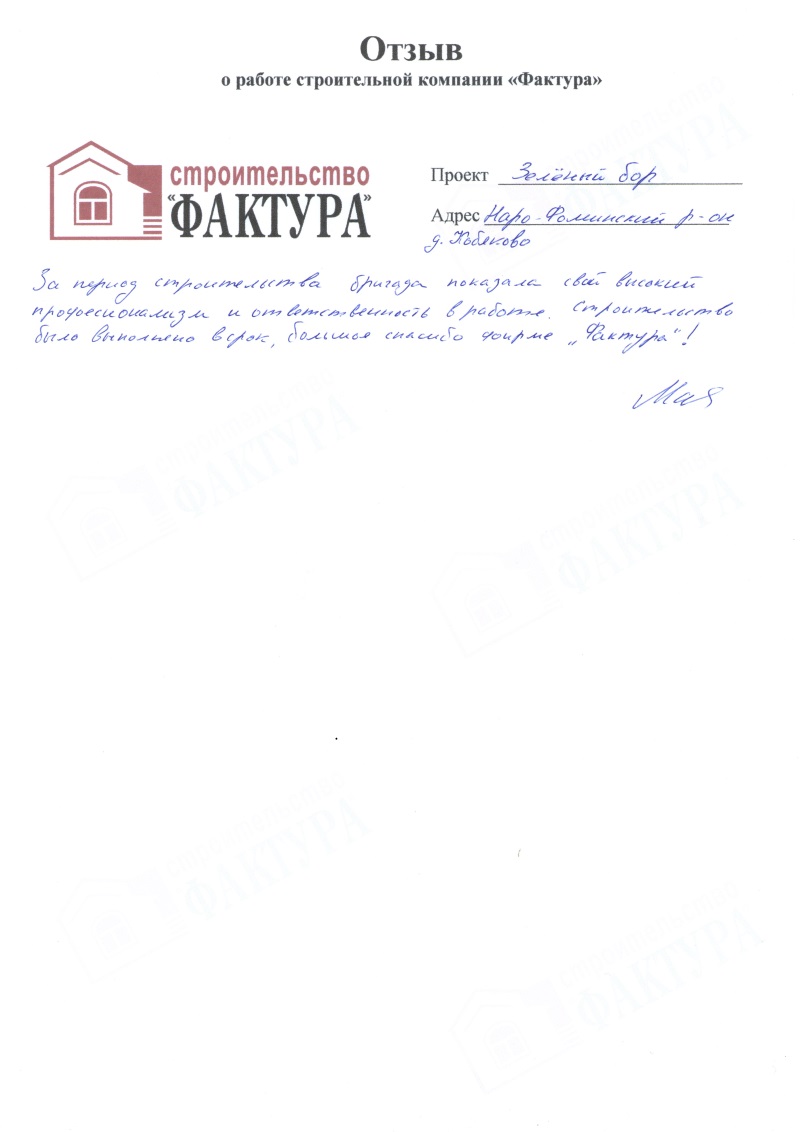 Отзыв
о работе строительной компании «Фактура»
строительство
"ФАКТУРА"
Проект Зелёный бор
Адрес Наро-Фоминский р-он
д.
За период строительства бригада показала свой высокий
профессионализм и ответственность в работе. Строительство
было выполнено в срок, большое спасибо фирме „Фактура"!
строительство
ФАКТУРА
строительство
ФАКТУРА
строительство
ФАКТУРА
строительство
ФАКТУРА